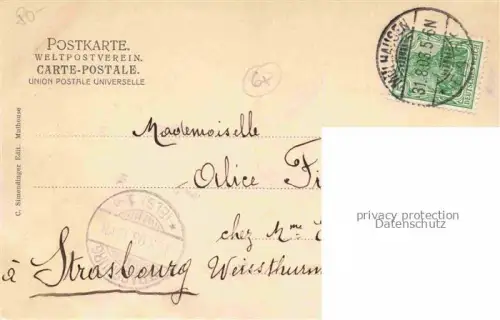 POSTKARTE.
WELTPOSTVEREIN.
CARTE-POSTALE.
UNION POSTALE UNIVERSELLE.
C. Simendinger Edit. Mulhouse
Mademoiselle
Alice Fi
chez Mme
à Strasbourg Weissthurm
privacy protection
Datenschutz